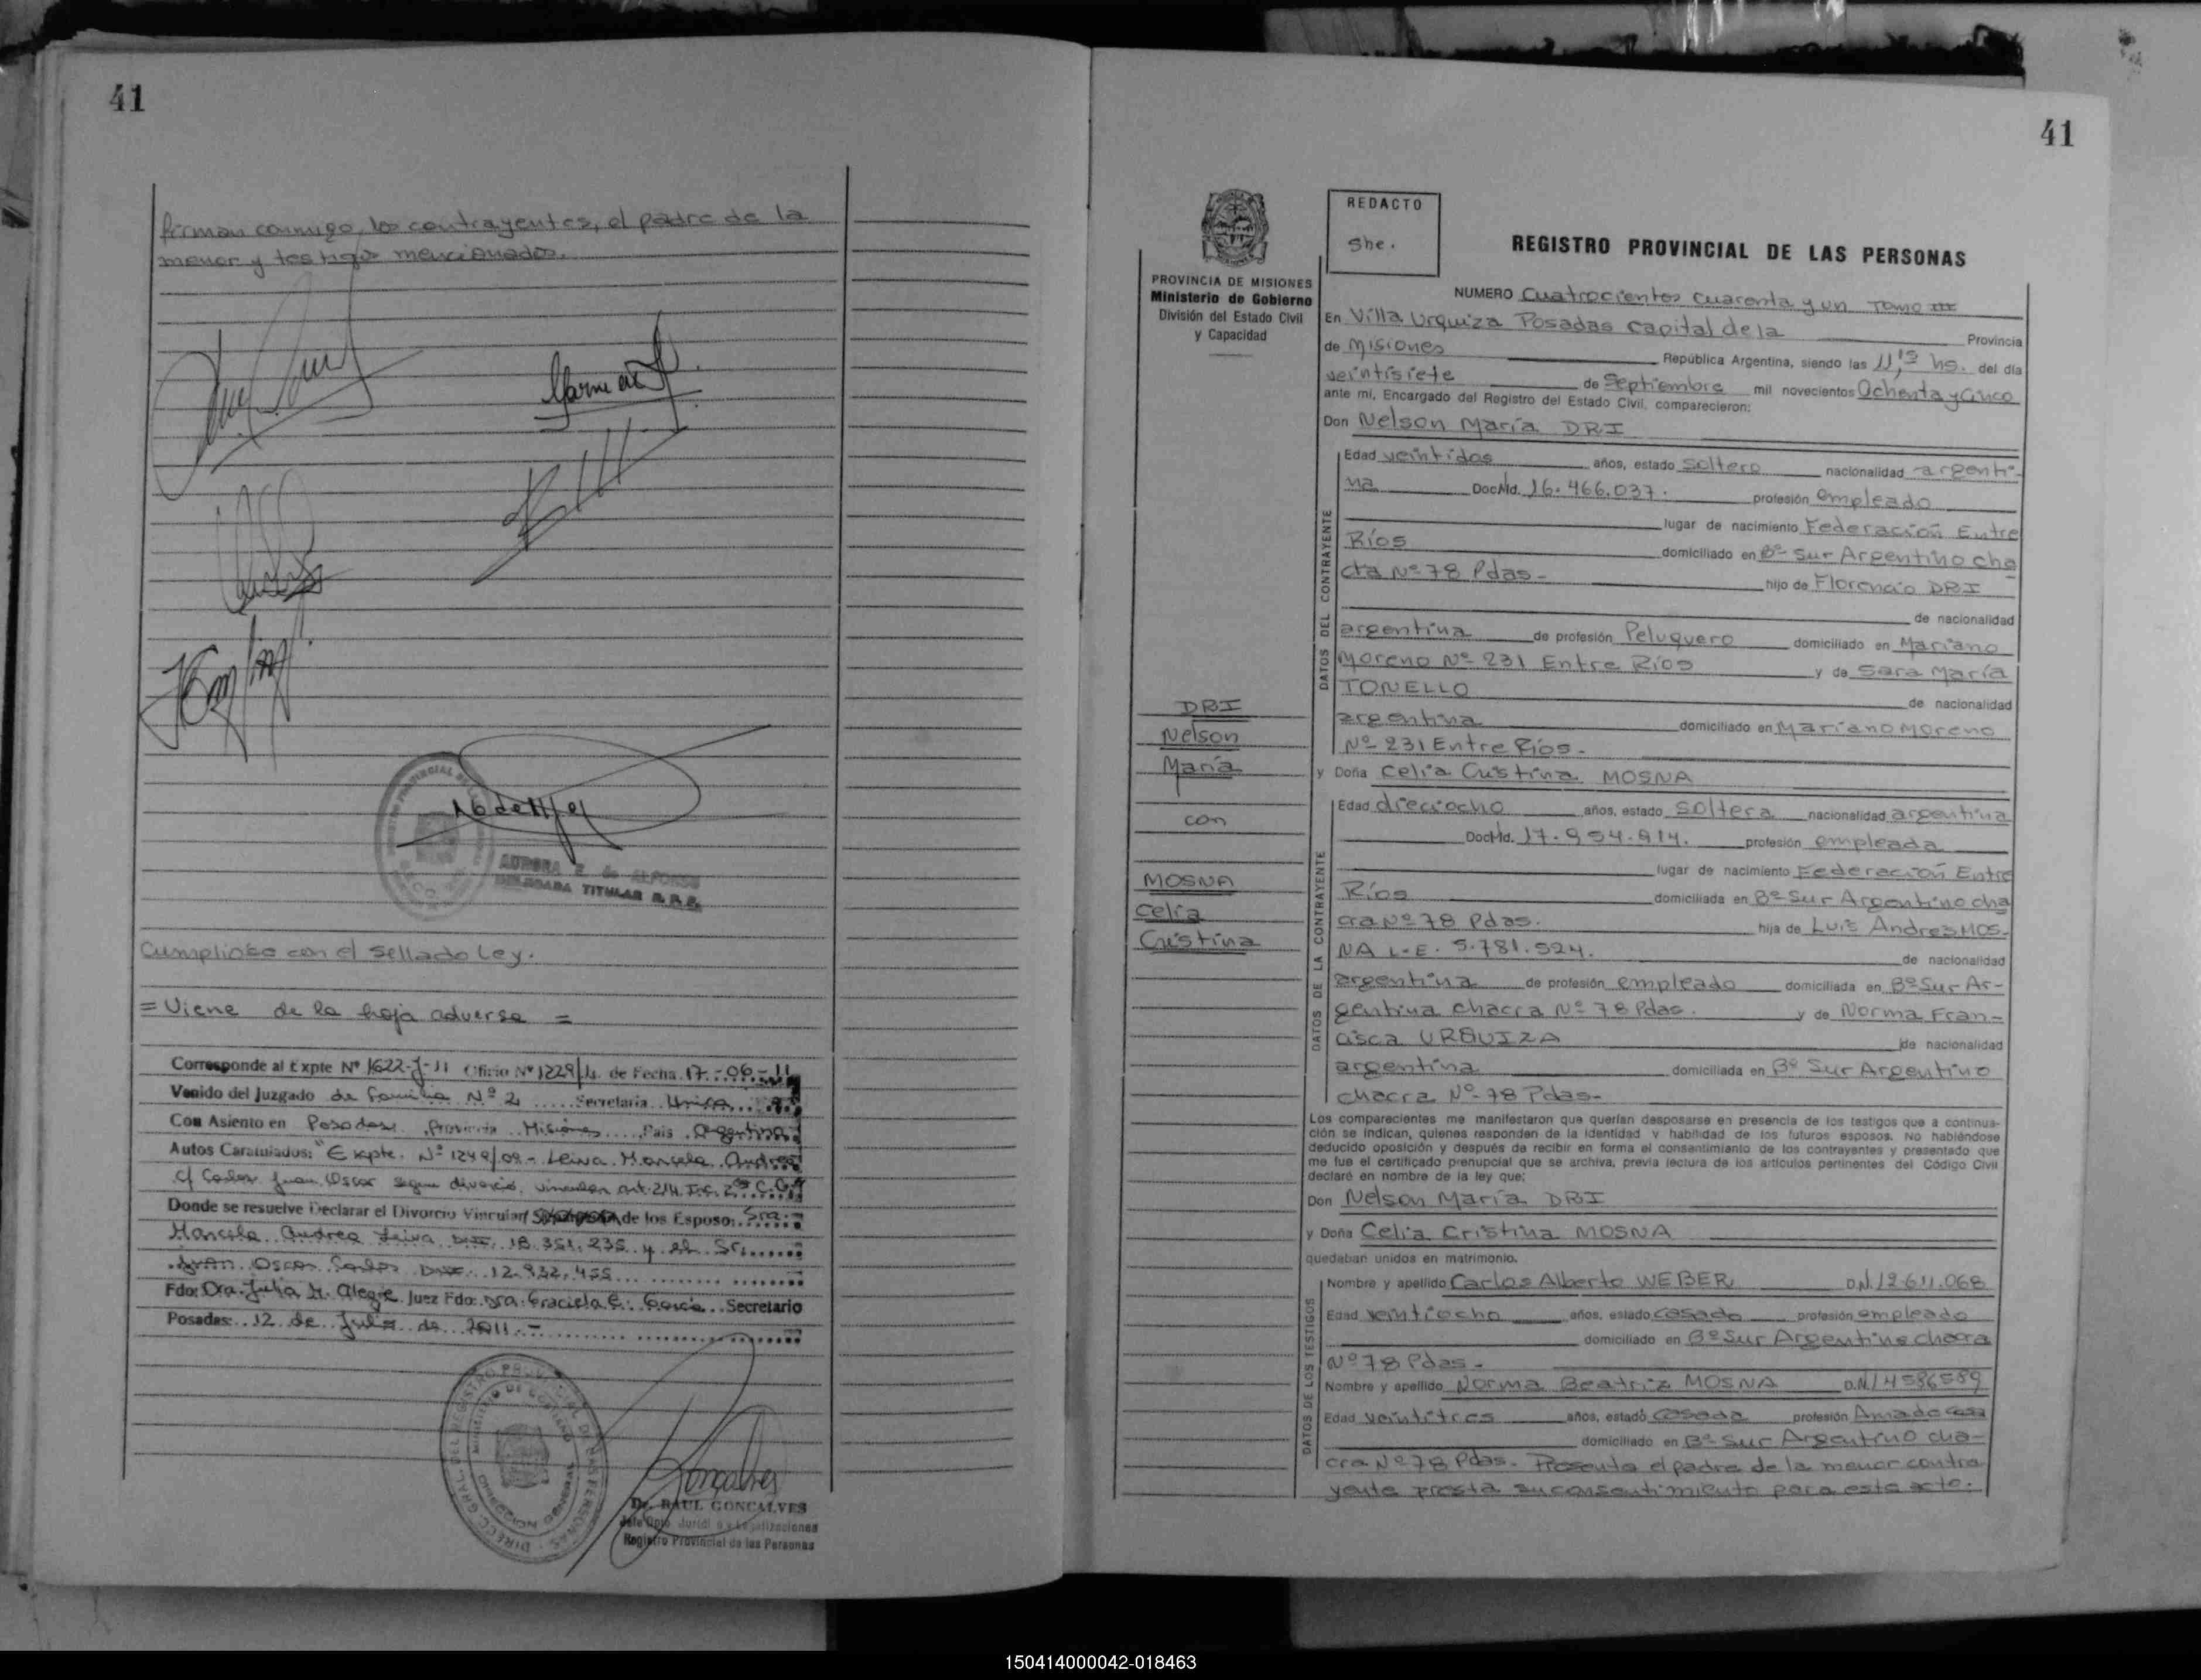 41
firman conmigo, los contrayentes, el padre de la
menor y testigos mencionados.
AURORA E de ALFONSO
DELEGADA TITULAR R.P.P.
Cumpliose con el Sellado Ley.
= Viene de la hoja adversa =
Corresponde al Expte Nº 1622-J-11 Oficio Nº 1229/11 de Fecha 17-06-11
Venido del Juzgado de Familia Nº 2 Secretaria Unica
Con Asiento en Posadas Provincia Misiones Pais Argentina
Autos Caratulados: "Expte. Nº 1249/09 - Leiva Marcela Andrea
c/ Carlos Juan Oscar
Donde se resuelve Declarar el Divorcio Vincular de los Esposo: Sra.
Marcela Andrea Leiva 18.351.235 y el Sr.
Juan Oscar Carlos 12.932.455
Fdo: Dra. Julia Alegre Juez Fdo: Dra. Graciela Secretario
Posadas: 12 de Julio de 2011.-
Dr. RAUL GONCALVES
Registro Provincial de las Personas
41
REDACTO
She.
PROVINCIA DE MISIONES
Ministerio de Gobierno
División del Estado Civil
y Capacidad
REGISTRO PROVINCIAL DE LAS PERSONAS
NUMERO Cuatrocientos cuarenta y un Tomo III
En Villa Urquiza Posadas Capital de la Provincia
de Misiones República Argentina, siendo las 11,15 hs. del día
veintisiete de Septiembre mil novecientos Ochenta y Cinco
ante mí, Encargado del Registro del Estado Civil, comparecieron:
Don Nelson María DRI
DATOS DEL CONTRAYENTE
Edad veintidos años, estado soltero nacionalidad argenti-
na Doc.Nd. 16.466.037. profesión empleado
lugar de nacimiento Federación Entre
Ríos domiciliado en Bº Sur Argentino cha
cra Nº 78 Pdas- hijo de Florencio DRI
de nacionalidad
argentina de profesión Peluquero domiciliado en Mariano
Moreno Nº 231 Entre Ríos y de Sara María
TONELLO de nacionalidad
argentina domiciliado en Mariano Moreno
Nº 231 Entre Ríos-
y Doña Celia Cristina MOSNA
DRI
Nelson
María
con
MOSNA
Celia
Cristina
DATOS DE LA CONTRAYENTE
Edad dieciocho años, estado soltera nacionalidad argentina
Doc.Nd. 17.954.914. profesión empleada
lugar de nacimiento Federación Entre
Ríos domiciliada en Bº Sur Argentino cha
cra Nº 78 Pdas. hija de Luis Andres MOS-
NA L.E. 5.781.524. de nacionalidad
argentina de profesión empleado domiciliada en Bº Sur Ar-
gentina chacra Nº 78 Pdas. y de Norma Fran-
cisca URQUIZA de nacionalidad
argentina domiciliada en Bº Sur Argentino
chacra Nº 78 Pdas-
Los comparecientes me manifestaron que querían desposarse en presencia de los testigos que a continua-
ción se indican, quienes responden de la identidad y habilidad de los futuros esposos. No habiéndose
deducido oposición y después de recibir en forma el consentimiento de los contrayentes y presentado que
me fue el certificado prenupcial que se archiva, previa lectura de los artículos pertinentes del Código Civil
declaré en nombre de la ley que:
Don Nelson María DRI
y Doña Celia Cristina MOSNA
quedaban unidos en matrimonio.
DATOS DE LOS TESTIGOS
Nombre y apellido Carlos Alberto WEBER D.N. 12.611.068
Edad veintiocho años, estado casado profesión empleado
domiciliado en Bº Sur Argentino chacra
Nº 78 Pdas-
Nombre y apellido Norma Beatriz MOSNA D.N. 14586589
Edad veintitres años, estado casada profesión Ama de casa
domiciliado en Bº Sur Argentino cha-
cra Nº 78 Pdas. Presente el padre de la menor contra
yente presta su consentimiento para este acto.
150414000042-018463